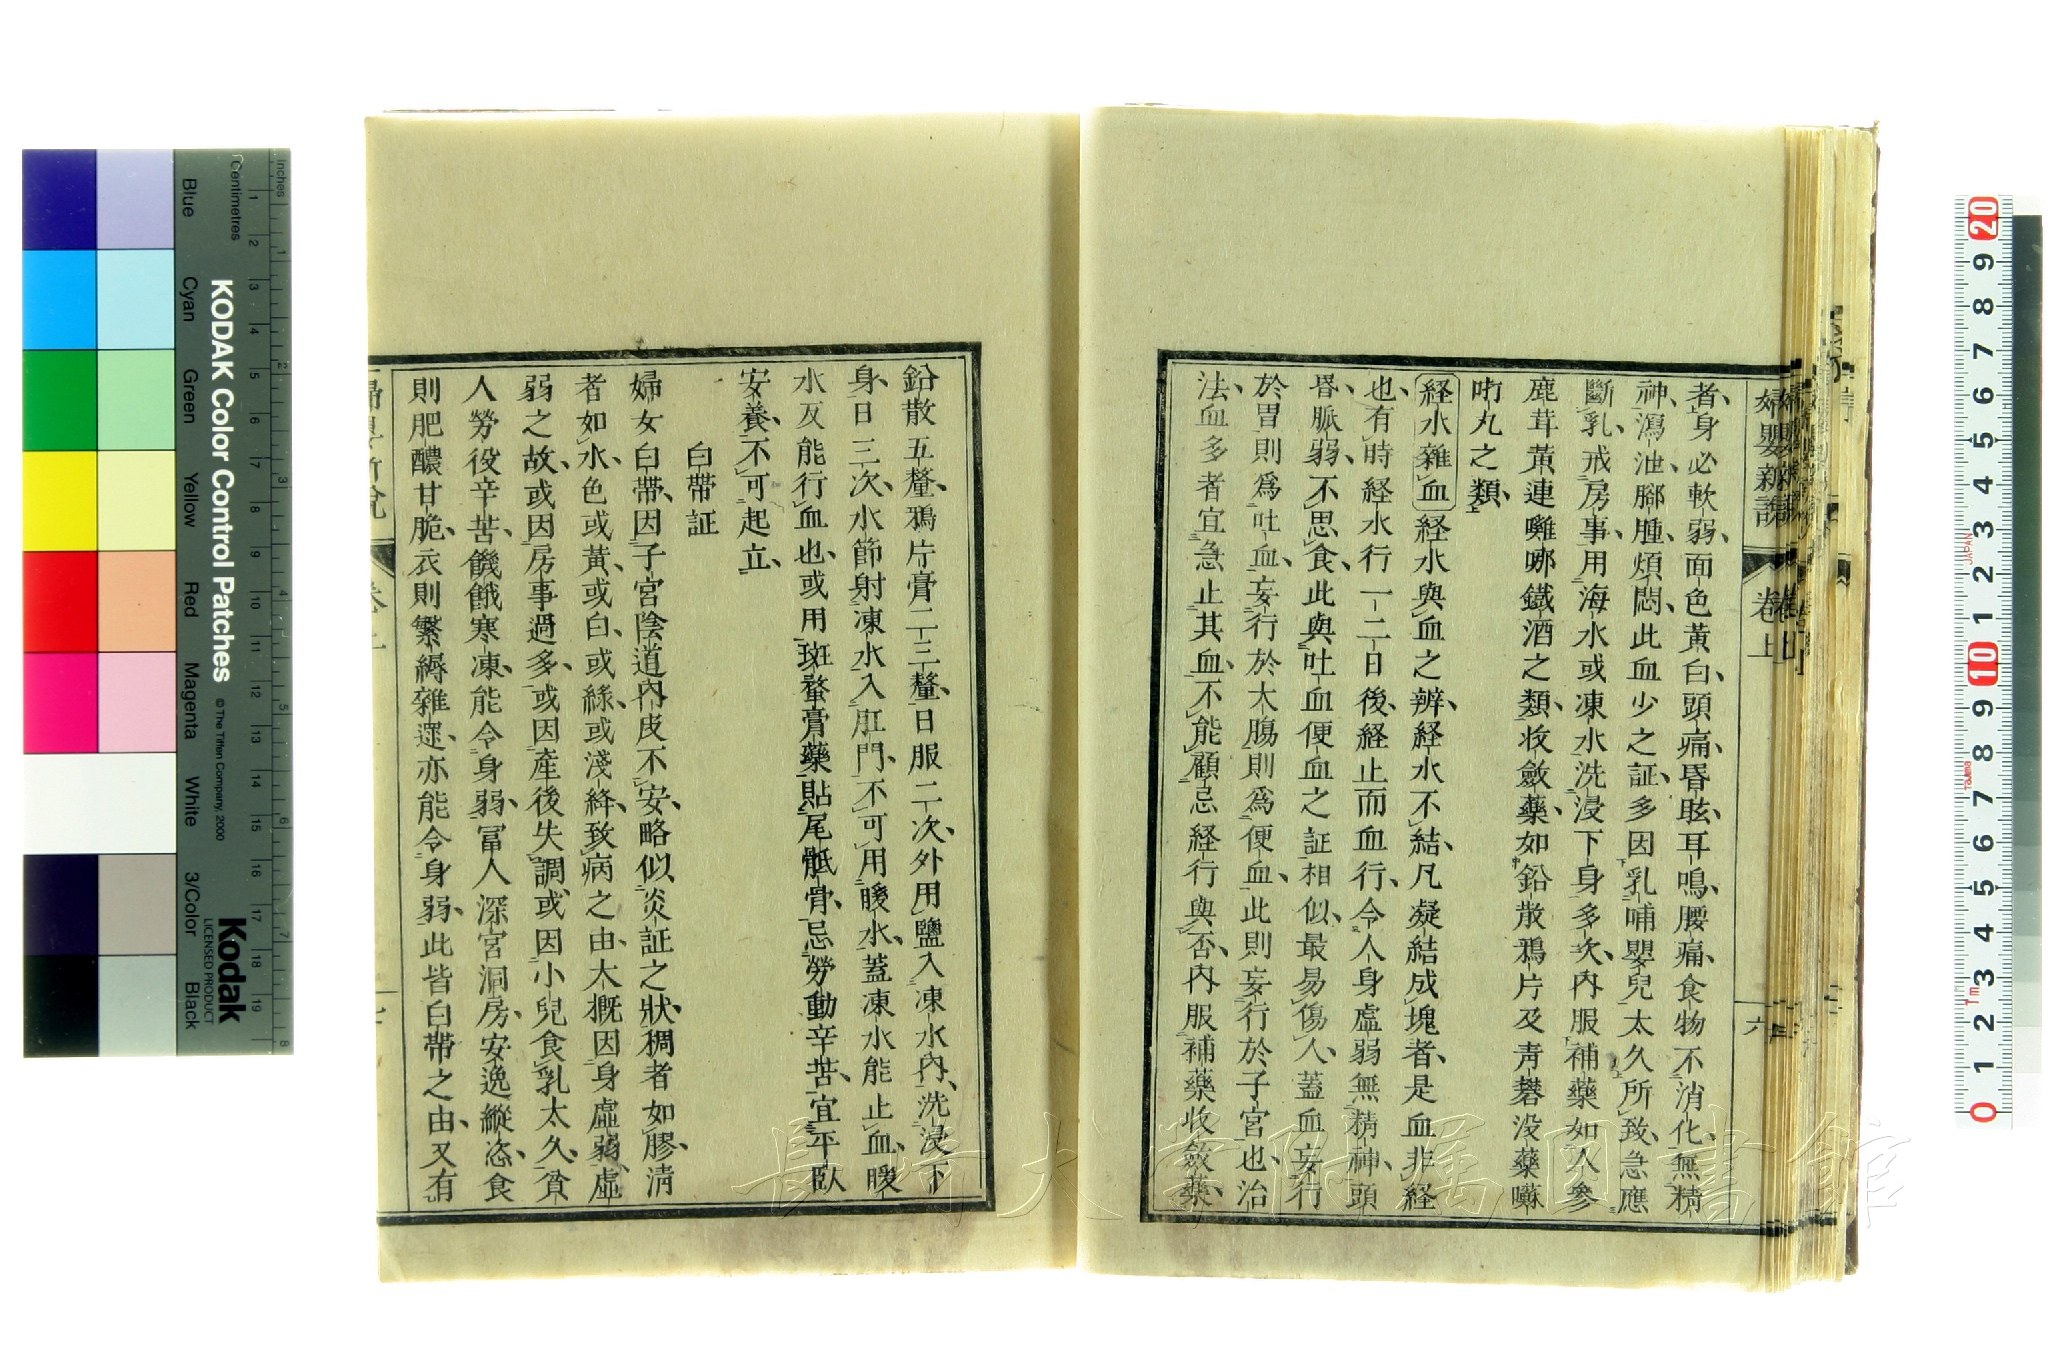 婦嬰新説 卷上 六
者、身必軟弱、面色黃白、頭痛昏眩、耳鳴、腰痛、食物不消化、無精
神、瀉泄、腳腫、煩悶、此血少之証、多因乳哺嬰兒太久所致、急應
斷乳、戒房事、用海水或凍水洗浸下身多次、內服補藥如人參
鹿茸黃連囄哪鐵酒之類、收斂藥、如鉛散鴉片及青礬没藥囌
㕸丸之類、
経水雜血 経水與血之辨、経水不結、凡凝結成塊者、是血非経
也、有時経水行一二日後、経止而血行、令人身虛弱無精神、頭
昏、脈弱、不思食、此與吐血便血之証相似、最易傷人、蓋血妄行
於胃則爲吐血、妄行於大腸則爲便血、此則妄行於子宮也、治
法、血多者宜急止其血、不能顧忌経行與否、內服補藥收斂藥、
鉛散五釐、鴉片膏二三釐、日服二次、外用鹽入凍水內、洗浸下
身、日三次、水節射凍水入肛門、不可用暖水、蓋凍水能止血、暖
水反能行血也、或用斑蝥膏藥貼尾骶骨、忌勞動辛苦、宜平臥
安養、不可起立、
白帶証
婦女白帶、因子宮陰道內皮不安、略似炎証之狀、稠者如膠、清
者如水、色或黃、或白、或綠、或淺絳、致病之由、大概因身虛弱虛
弱之故、或因房事過多、或因產後失調、或因小兒食乳太久、貧
人勞役辛苦、饑餓寒凍、能令身弱、冨人深宮洞房、安逸縱恣、食
則肥醲甘脆、衣則繁縟雜遝、亦能令身弱、此皆白帶之由、又有
KODAK Color Control Patches
© The Tiffen Company, 2000
Kodak
LICENSED PRODUCT
Blue Cyan Green Yellow Red Magenta White 3/Color Black
Centimetres 1 2 3 4 5 6 7 8 9 10 11 12 13 14 15 16 17 18 19
Inches 1 2 3 4 5 6 7 8
20 9 8 7 6 5 4 3 2 1 10 9 8 7 6 5 4 3 2 1 0
JAPAN
Tajima
長崎大学附属図書館